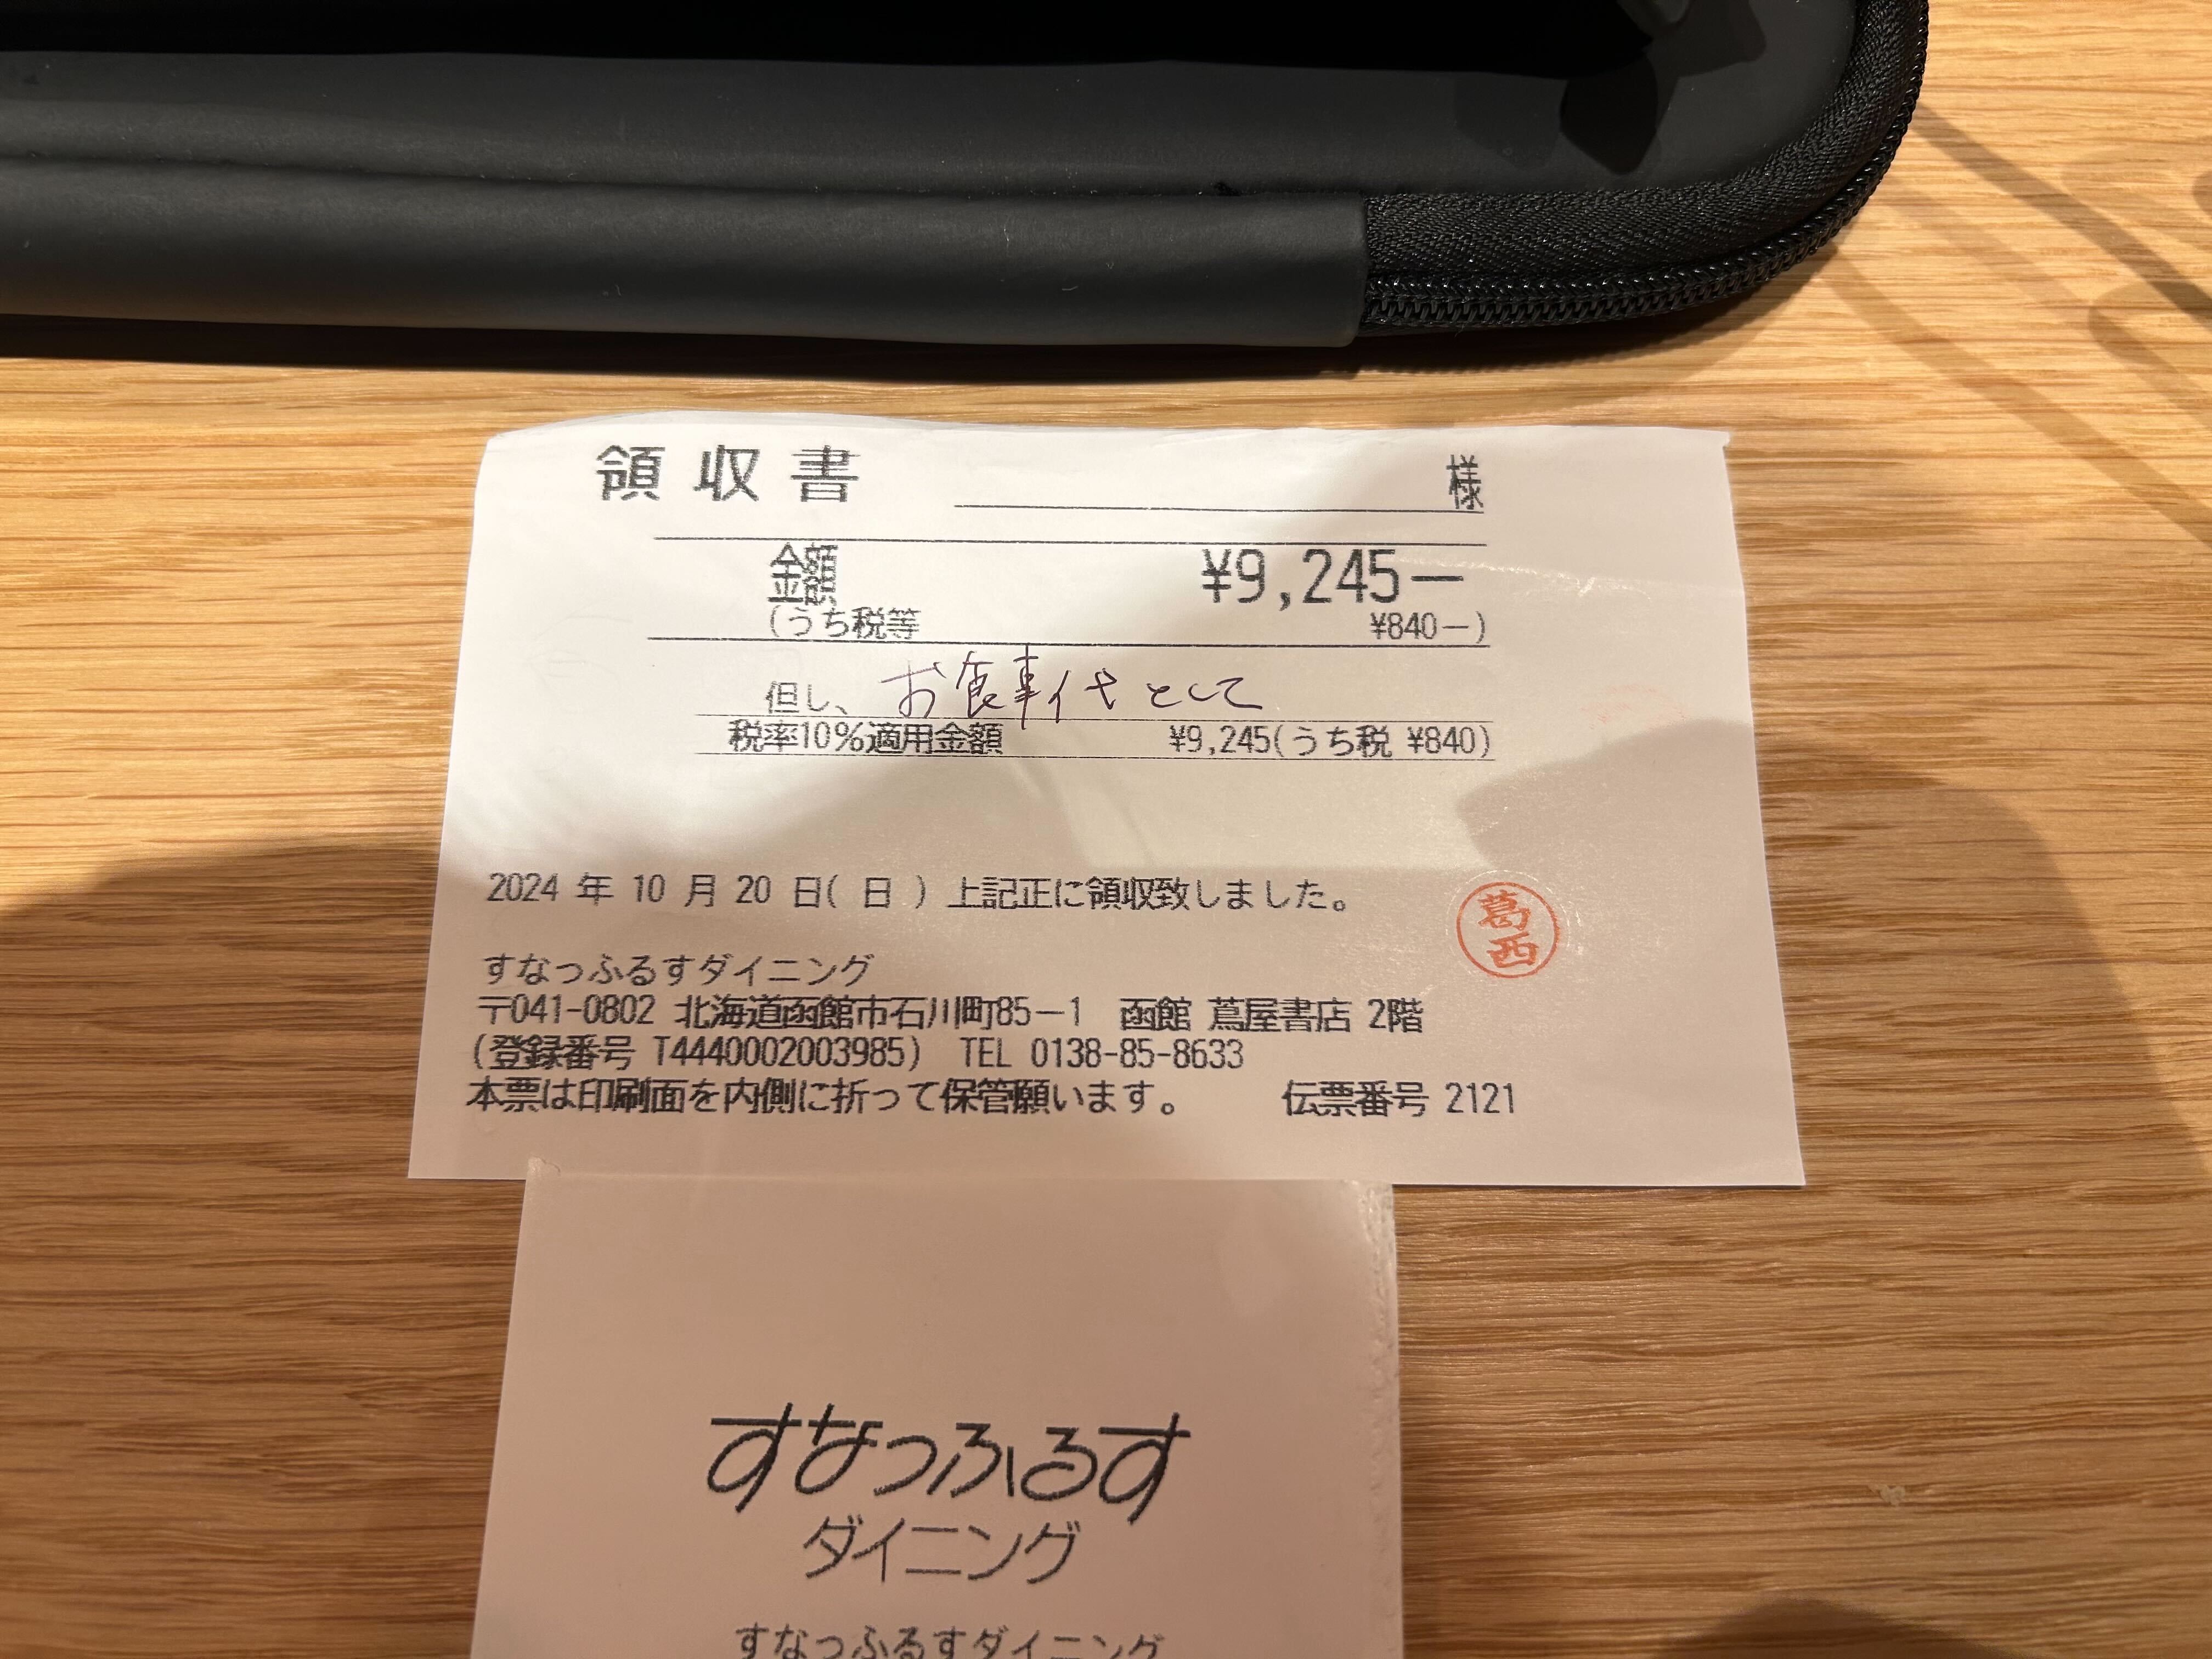 領収書 様
金額 ¥9,245―
(うち税等 ¥840―)
但し、お食事代として
税率10%適用金額 ¥9,245(うち税 ¥840)
2024 年 10 月 20 日( 日 ) 上記正に領収致しました。
葛西
すなっふるすダイニング
〒041-0802 北海道函館市石川町85―1 函館 蔦屋書店 2階
(登録番号 T4440002003985) TEL 0138-85-8633
本票は印刷面を内側に折って保管願います。 伝票番号 2121
すなっふるす
ダイニング
すなっふるすダイニング